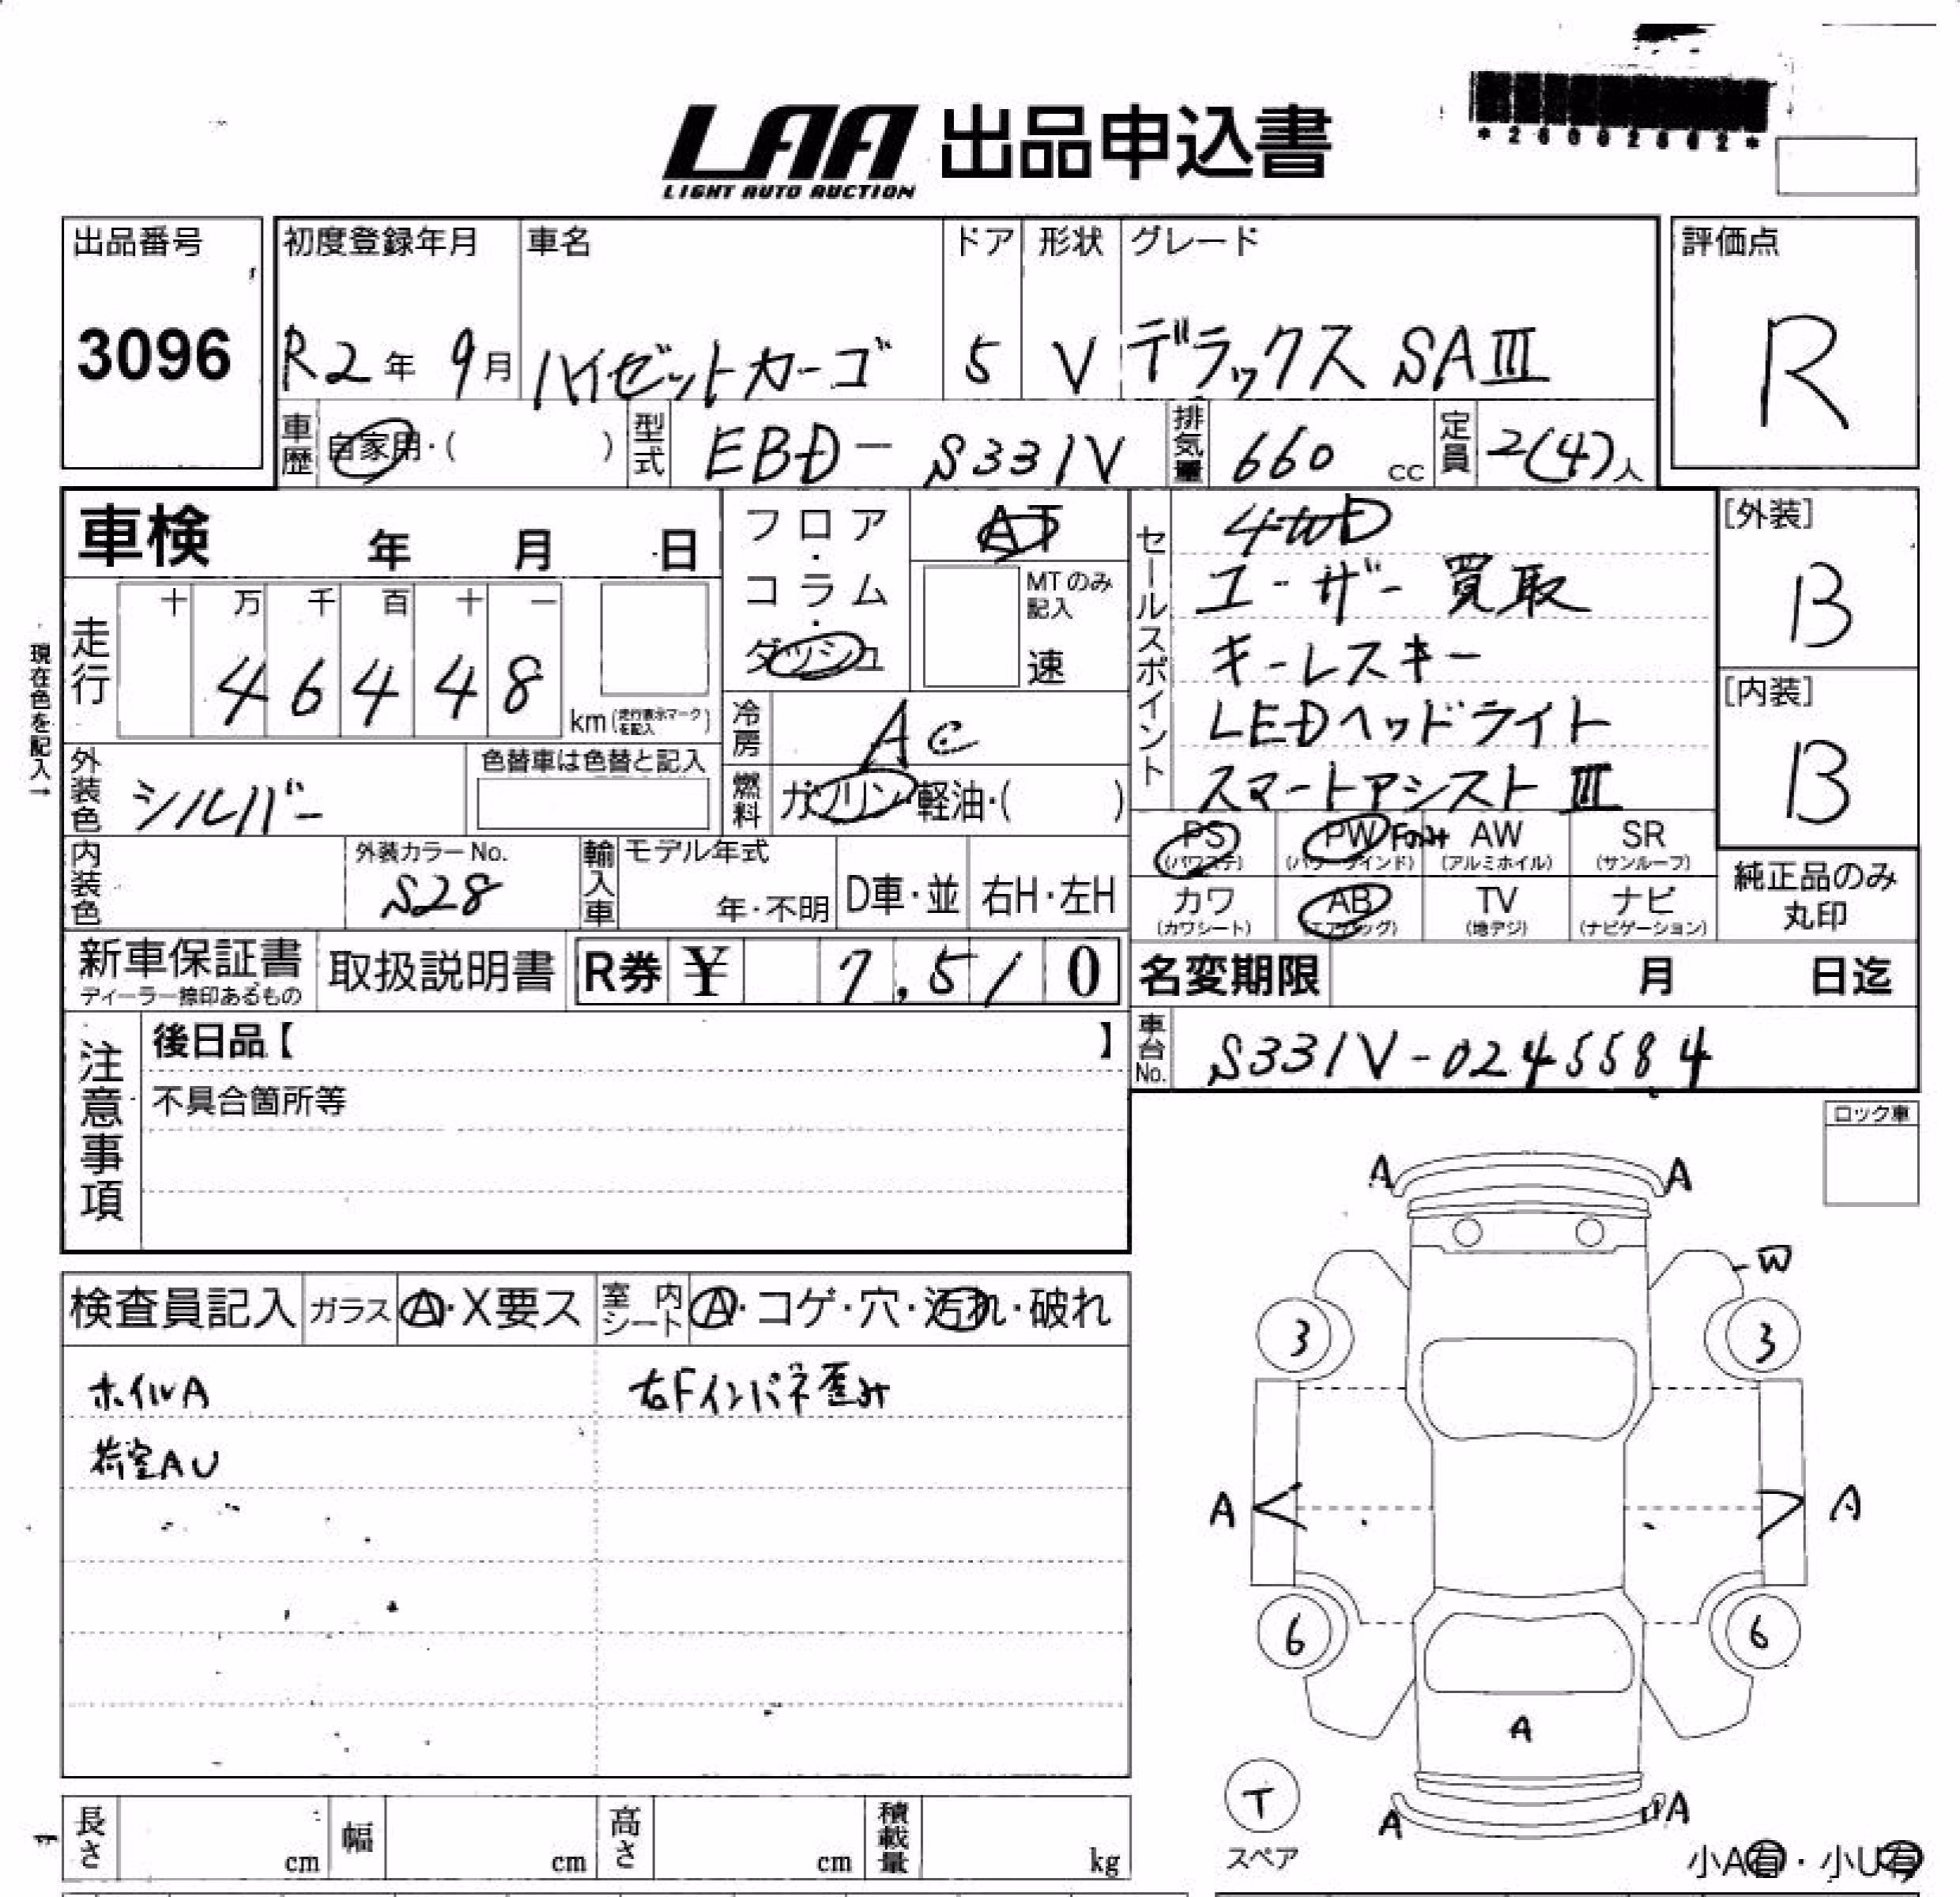 LAA 出品申込書
LIGHT AUTO AUCTION
出品番号
3096
初度登録年月 車名 ドア 形状 グレード
R2年 9月 ハイゼットカーゴ 5 V デラックス SAIII
評価点
R
車歴 自家用・( ) 型式 EBD-S331V 排気量 660 cc 定員 2(4)人
車検 年 月 日
フロア・コラム・ダッシュ
AT
MTのみ記入
速
セールスポイント
4WD
ユーザー買取
キーレスキー
LEDヘッドライト
スマートアシスト III
[外装]
B
[内装]
B
現在色を記入→
走行 十 万 千 百 十 一
4 6 4 4 8
km(走行表示マークを記入)
冷房 AC
外装色 シルバー 色替車は色替と記入
燃料 ガソリン・軽油・( )
PS (パワステ) PW (パワーウインド) Front AW (アルミホイル) SR (サンルーフ)
カワ (カワシート) AB (エアバッグ) TV (地デジ) ナビ (ナビゲーション)
純正品のみ
丸印
内装色 外装カラーNo. S28
輸入車 モデル年式 年・不明 D車・並 右H・左H
新車保証書 ディーラー捺印あるもの 取扱説明書 R券 ¥ 7,510
名変期限 月 日迄
車台No. S331V-0245584
注意事項
後日品【 】
不具合箇所等
ロック車
検査員記入 ガラス A・X要ス 室内シート A・コゲ・穴・汚れ・破れ
ホイルA 右Fインパネ歪み
荷室AU
A A
W
3 3
A A
6 6
A
T
スペア
A A
小A有・小U有
長さ cm 幅 cm 高さ cm 積載量 kg